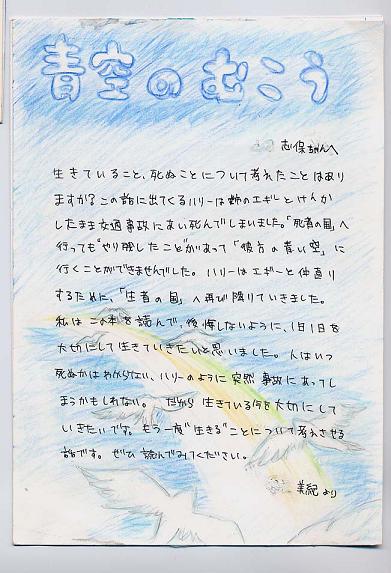 青空のむこう
志保ちゃんへ
生きていること、死ぬことについて考えたことはあり
ますか?この話に出てくるハリーは姉のエギーとけんか
したまま交通事故にあい死んでしまいました。「死者の国」へ
行っても"やり残したこと"があって「彼方の青い空」に
行くことができませんでした。ハリーはエギーと仲直り
するために、「生者の国」へ再び降りていきました。
私はこの本を読んで、後悔しないように、1日1日を
大切にして生きていきたいと思いました。人はいつ
死ぬかはわからない、ハリーのように突然事故にあってし
まうかもしれない。だから生きている今を大切にして
いきたいです。もう一度"生きる"ことについて考えさせる
話です。ぜひ読んでみてください。
美紀より